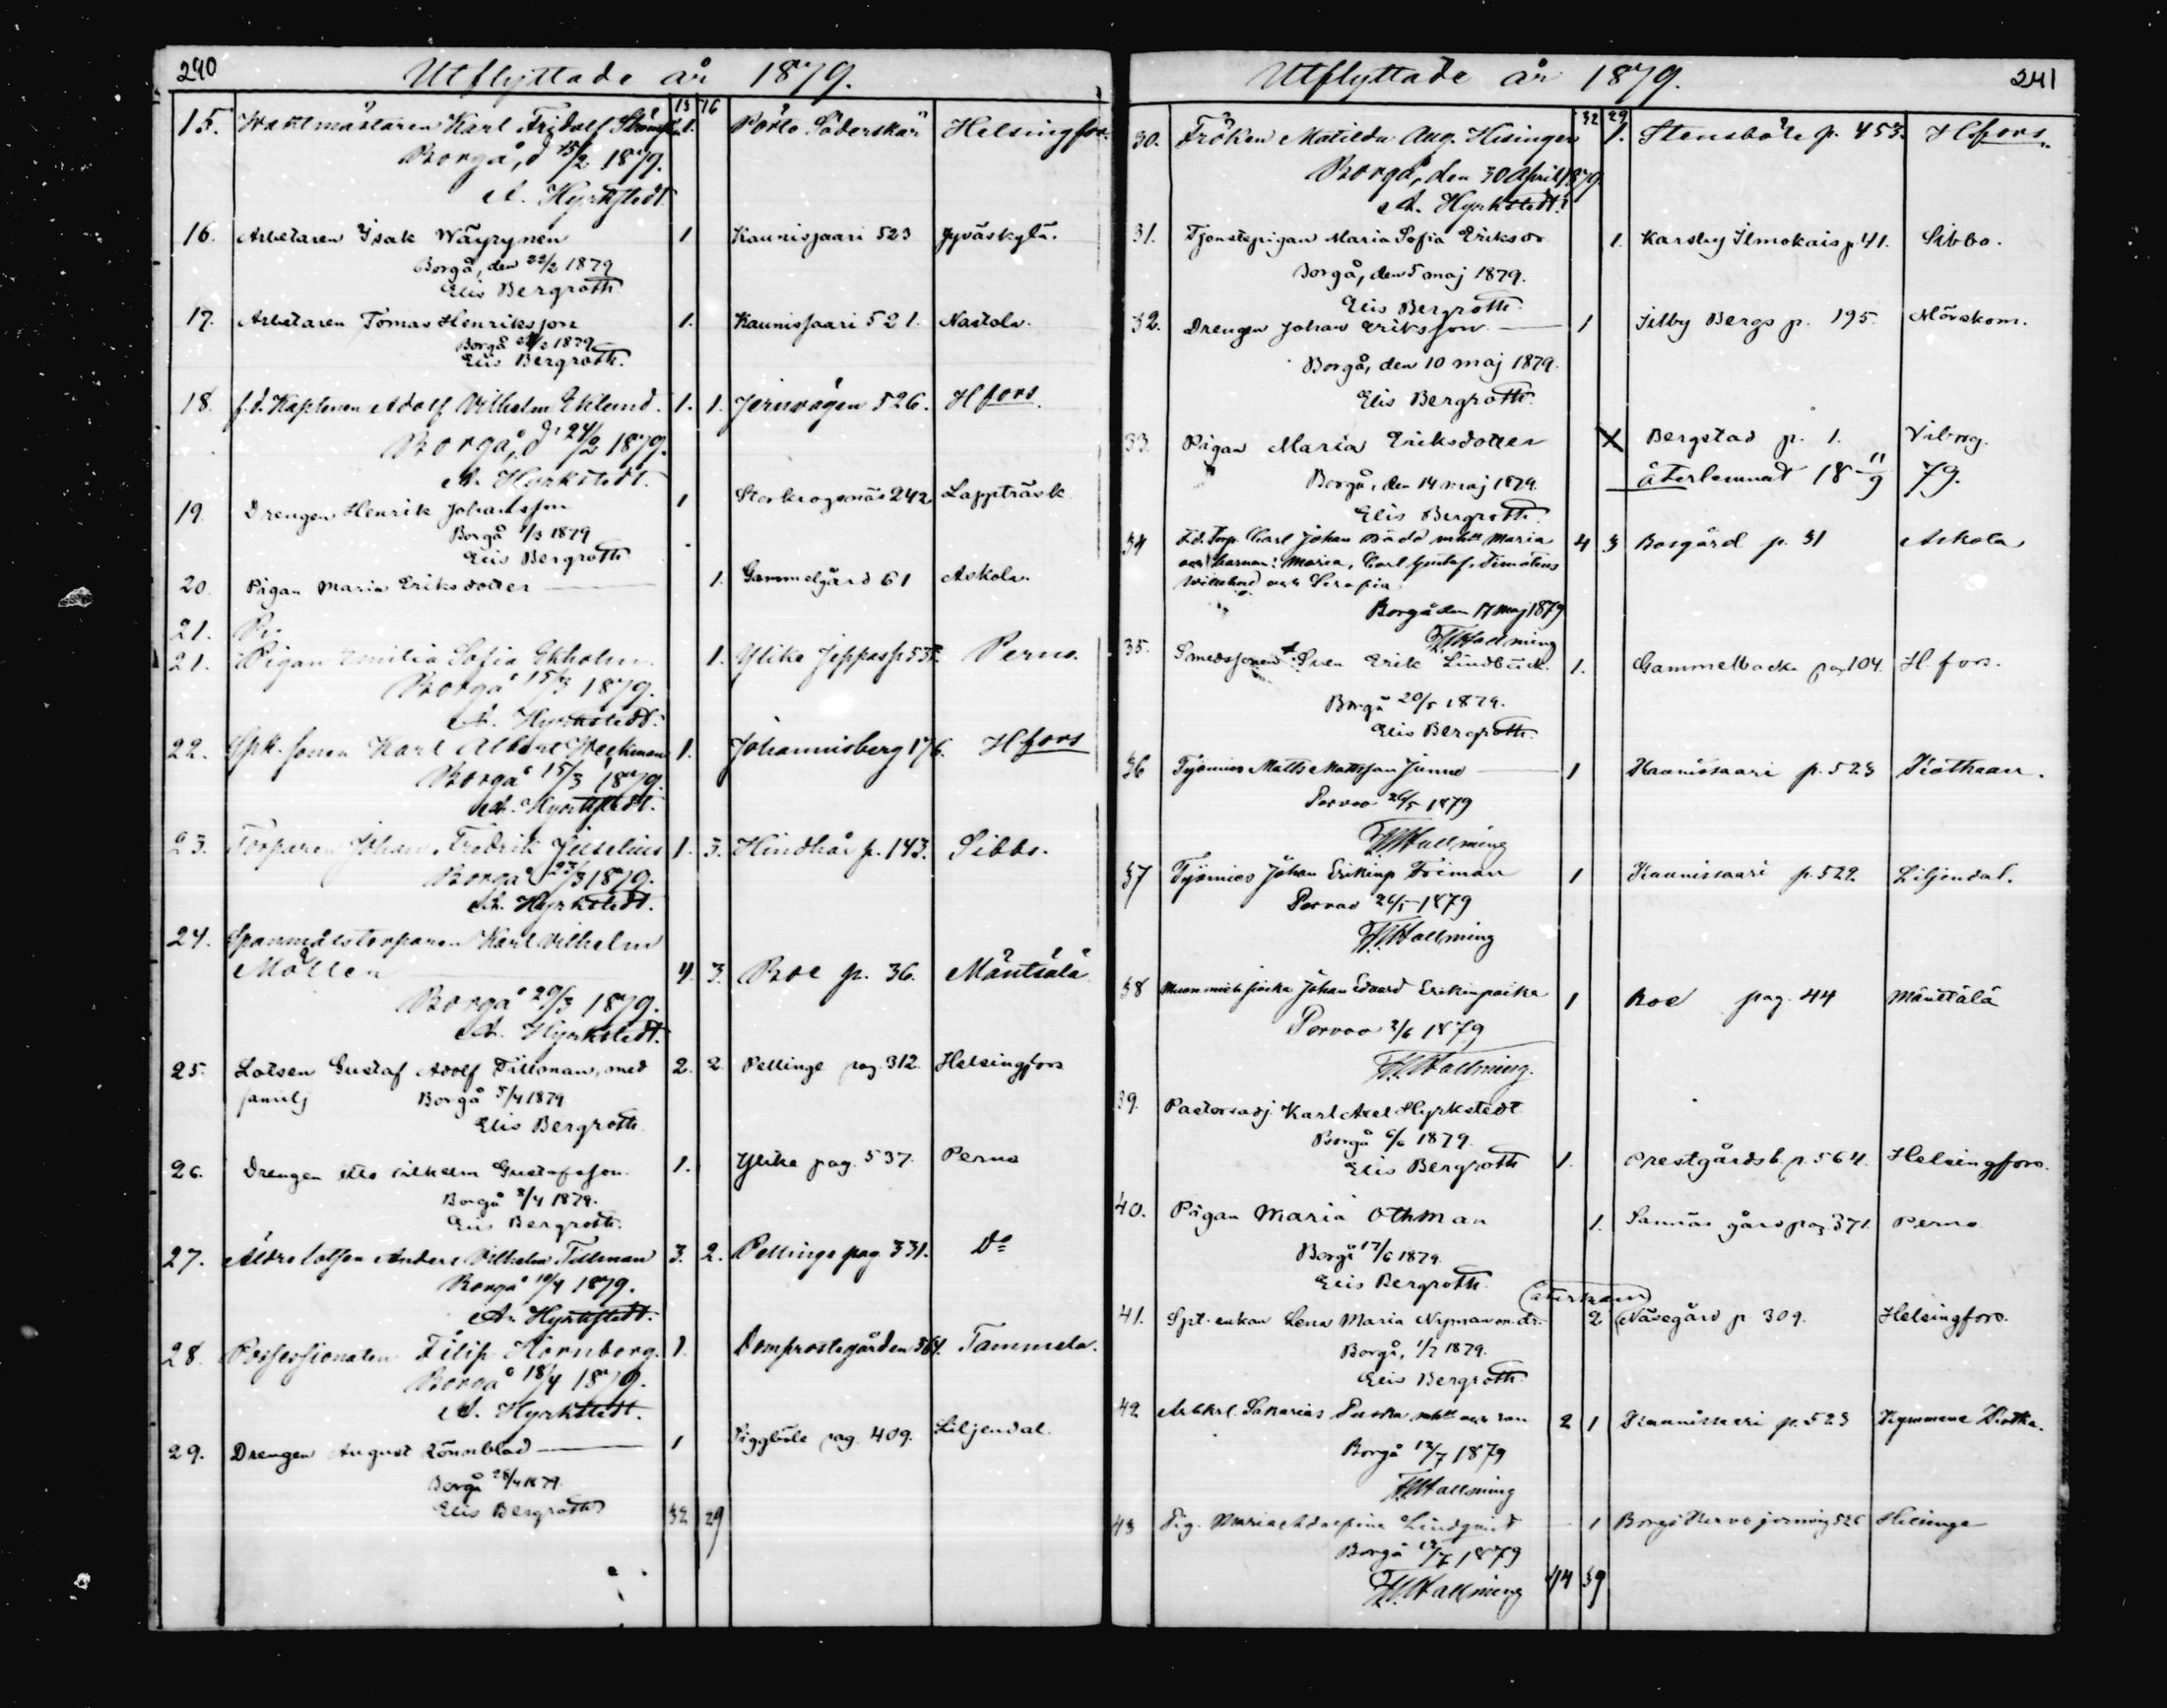 240 Utflyttade år 1879.
13 16
15. Waktmästaren Karl Fridolf 1. Pörtö Söderskär Helsingfors.
Borgå, d 15/2 1879.
A. Hyrkstedt.
16. Arbetaren Isak Wäyrynen 1 Kaunissaari 523 Jyväskylä.
Borgå, den 22/2 1879
Elis Bergroth.
17. Arbetaren Tomas Henriksson 1. Kaunissaari 521. Nastola.
Borgå 1879
Elis Bergroth.
18. f.d. Kaptenen Adolf Vilhelm Eklund. 1. 1. Jernvägen 526. Hfors.
Borgå, d. 24/2 1879.
A. Hyrkstedt.
19. Drengen Henrik Johansson 1 242 Lappträsk
Borgå 1/3 1879
Elis Bergroth
20. Pigan Maria Eriksdotter 1. Gammelgård 61 Askola.
21. Pi
21. Pigan Emilia Sofia Ekholm. 1. Ylike Jeppas p 535. Perno.
Borgå 15/3 1879.
A. Hyrkstedt.
22. Spk. sonen Karl Albert Weckman 1. Johannisberg 176. Hfors
Borgå 15/3 1879.
A. Hyrkstedt.
23. Torparen Johan Fredrik Juselius 1. 3. Hindhår p. 143. Sibbo.
Borgå 23/3 1879.
A. Hyrkstedt.
24. Spanmålstorparen Karl Vilhelm
Möller 4. 3. Boe p. 36. Mäntsälä
Borgå 29/3 1879.
A. Hyrkstedt.
25. Lotsen Gustaf Adolf Tillman, med 2. 2. Pellinge pag. 312. Helsingfors
familj Borgå 5/4 1879
Elis Bergroth.
26. Drengen Otto Vilhelm Gustafsson. 1. Ylike pag. 537. Perno
Borgå 8/4 1879.
Elis Bergroth.
27. Äldre lotsen Anders Vilhelm Tillman 3. 2. Pellinge pag. 331. Do
Borgå 10/4 1879.
A. Hyrkstedt.
28. Possessionaten Filip Hornborg. 1. Domprostegården 564. Tammela.
Borgå 18/4 1879.
A. Hyrkstedt.
29. Drengen August Rönnblad 1 Piggböle pag. 409. Liljendal.
Borgå 28/4 1879.
Elis Bergroth
32 29
Utflyttade år 1879. 241
32 29
30. Fröken Matilda Aug. Hisinger 1. Stensböle p. 453. Hfors.
Borgå, den 30 April 1879.
A. Hyrkstedt.
31. Tjenstepigan Maria Sofia Eriksdr 1. Karsby Ilmokais p 41. Sibbo.
Borgå, den 5 maj 1879.
Elis Bergroth.
32. Drengen Johan Eriksson 1 Illby Bergs p. 195. Mörskom.
Borgå, den 10 maj 1879.
Elis Bergroth.
33. Pigan Maria Eriksdotter X Bergstad p. 1. Viborg.
Borgå, den 14 maj 1879. återlemnat 18 11/9 79.
Elis Bergroth.
34 F.d. Torp. Carl Johan mhu Maria 4 3 Bosgård p. 31 Askola
och barnen: Maria, Carl Gustaf, Timoteus
och Serafia
Borgå den 17 maj 1879
Hallming
35. Smedssonen Sven Erik Lindbäck. 1. Gammelbacka pag 104. H. fors.
Borgå 20/5 1879.
Elis Bergroth.
36 Työmies Matts Mattsson Junne 1 Kaunissaari p. 523
Porvoo 26/5 1879
Hallming
37 Työmies Johan Erikinp Friman 1 Kaunissaari p. 522. Liljendal.
Porvoo 26/5 1879
Hallming
38 Johan Edvard Erikinpoika 1 Boe pag. 44 Mäntsälä
Porvoo 3/6 1879
Hallming.
39. Pastorsadj. Karl Axel Hyrkstedt
Borgå 6/6 1879.
Elis Bergroth 1. Prestgårdsb. p. 564. Helsingfors.
40. Pigan Maria Othman 1. Sannäs gård pag 371. Perno
Borgå 17/6 1879.
Elis Bergroth.
(återkom)
41. Spt. enkan Lena Maria Nyman m. dr. 2 Näsegård p. 309. Helsingfors.
Borgå, 1/7 1879.
Elis Bergroth.
42 Arbkrl. Sakarias mhu och son 2 1 Kaunissaari p. 523 Kymmene Kotka.
Borgå 12/7 1879
Hallming
43 Pig. Maria Adolfina Lindqvist 1 Borgå Kervo jernväg 526 Helsinge
Borgå 12/7 1879
Hallming 44 39